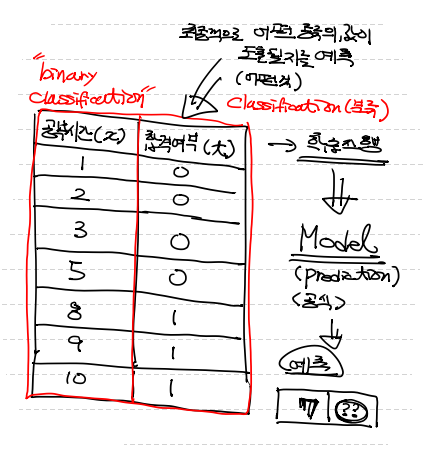 최종적으로 어떤 종류의 값이
도출될지를 예측
(어떤것)
"binary
classification"
Classification (분류)
공부시간(x) 합격여부(t)
1 0
2 0
3 0
5 0
8 1
9 1
10 1
→ 학습진행
Model
(prediction)
(공식)
예측
7 ??